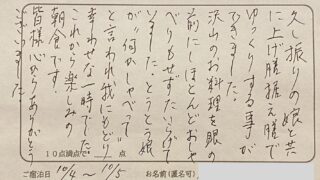 久し振りの娘と共
に上げ膳据え膳で
ゆっくりする事が
できました。
沢山のお料理を眼の
前にしほとんどおしゃ
べりもせずたいらげて
いました。とうとう娘
が"何かしゃべって"
と言われ我にもどり
幸わせな一時でした。
これから楽しみの
朝食です。
皆様心からありがとう
ございました。
10点満点で 点
ご宿泊日 10/4 〜 10/5 お名前(匿名可)